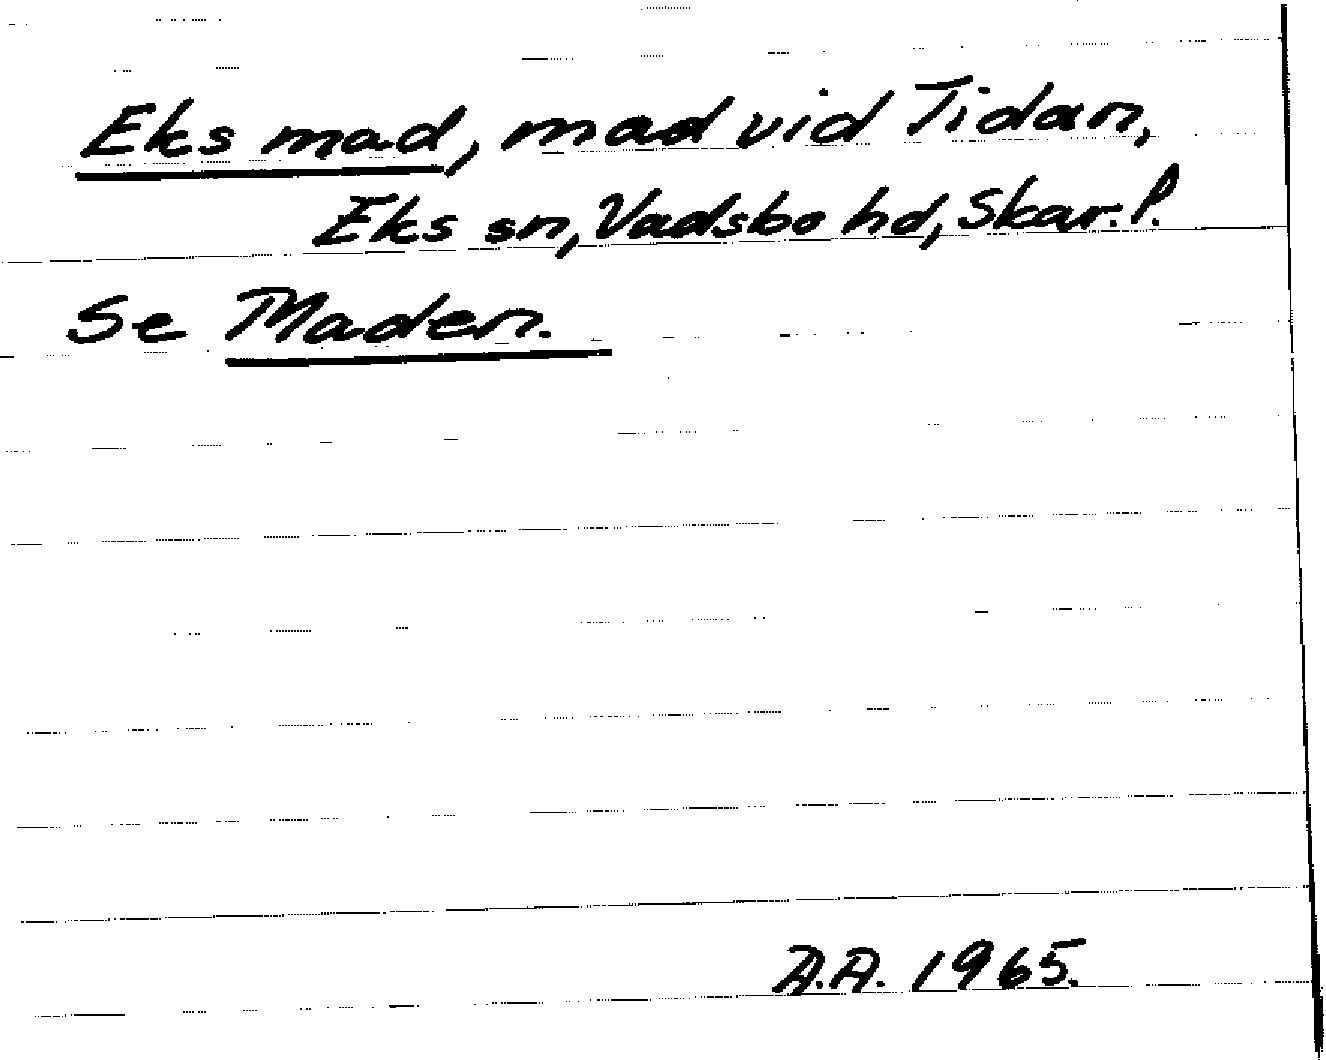 Eks mad, mad vid Tidan,
Eks sn, Vadsbo hd, Skar. l.
Se Maden.
A.A. 1965.